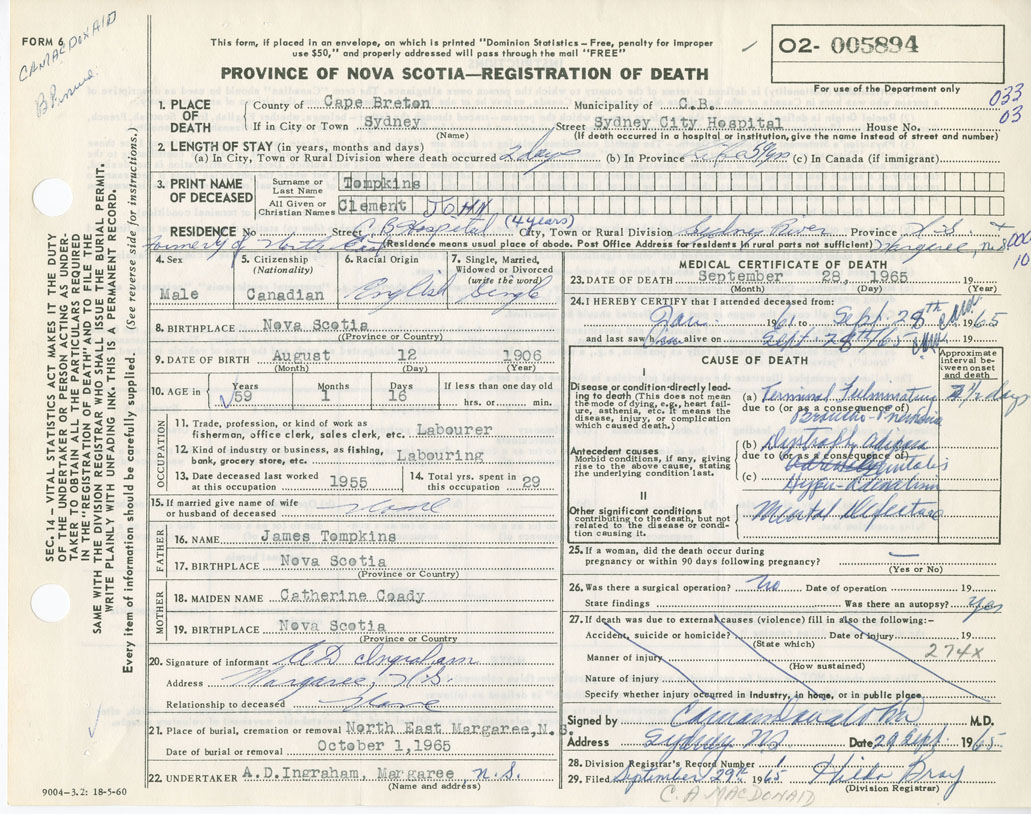 FORM 6
CAMACDONALD
This form, if placed in an envelope, on which is printed "Dominion Statistics – Free, penalty for improper
use $50," and properly addressed will pass through the mail "FREE"
PROVINCE OF NOVA SCOTIA—REGISTRATION OF DEATH
02- 005894
For use of the Department only
033
03
1. PLACE OF DEATH
County of Cape Breton Municipality of C.B.
If in City or Town Sydney Street Sydney City Hospital House No.
(Name) (If death occurred in a hospital or institution, give the name instead of street and number)
2. LENGTH OF STAY (in years, months and days)
(a) In City, Town or Rural Division where death occurred 2 days (b) In Province 59yrs (c) In Canada (if immigrant)
3. PRINT NAME OF DECEASED
Surname or Last Name Tompkins
All Given or Christian Names Clement JOHN
RESIDENCE No Street C.B Hospital (4 years) City, Town or Rural Division Sydney River Province N.S
formerly of North East (Residence means usual place of abode. Post Office Address for residents in rural parts not sufficient) Margaree, N.S
4. Sex Male
5. Citizenship (Nationality) Canadian
6. Racial Origin English
7. Single, Married, Widowed or Divorced (write the word) Single
8. BIRTHPLACE Nova Scotia
(Province or Country)
9. DATE OF BIRTH August 12 1906
(Month) (Day) (Year)
10. AGE in Years 59 Months 1 Days 16 If less than one day old hrs. or min.
OCCUPATION
11. Trade, profession, or kind of work as fisherman, office clerk, sales clerk, etc. Labourer
12. Kind of industry or business, as fishing, bank, grocery store, etc. Labouring
13. Date deceased last worked at this occupation 1955
14. Total yrs. spent in this occupation 29
15. If married give name of wife or husband of deceased None
FATHER
16. NAME James Tompkins
17. BIRTHPLACE Nova Scotia
(Province or Country)
MOTHER
18. MAIDEN NAME Catherine Coady
19. BIRTHPLACE Nova Scotia
(Province or Country)
20. Signature of informant A D Ingraham
Address Margaree, N.S.
Relationship to deceased None
21. Place of burial, cremation or removal North East Margaree,N.S.
Date of burial or removal October 1,1965
22. UNDERTAKER A.D.Ingraham, Margaree N.S.
(Name and address)
9004-3.2: 18-5-60
MEDICAL CERTIFICATE OF DEATH
23. DATE OF DEATH September 28, 1965
(Month) (Day) (Year)
24. I HEREBY CERTIFY that I attended deceased from:
Jan. 1961 to Sept. 28th 1965
and last saw him alive on Sept. 28th/65
CAUSE OF DEATH
Approximate interval between onset and death
I
Disease or condition directly leading to death (This does not mean the mode of dying, e.g., heart failure, asthenia, etc. It means the disease, injury, or complication which caused death.)
(a) Terminal Fulminating 1/2 day
due to (or as a consequence of)
Broncho-Pneumonia
Antecedent causes
Morbid conditions, if any, giving rise to the above cause, stating the underlying condition last.
(b) Dystrophy Adiposa
due to (or as a consequence of)
(c)
II
Other significant conditions contributing to the death, but not related to the disease or condition causing it.
Mental Defective
25. If a woman, did the death occur during pregnancy or within 90 days following pregnancy? —
(Yes or No)
26. Was there a surgical operation? No Date of operation 19
State findings Was there an autopsy? Yes
27. If death was due to external causes (violence) fill in also the following:–
Accident, suicide or homicide? Date of injury 19
(State which)
274X
Manner of injury
(How sustained)
Nature of injury
Specify whether injury occurred in industry, in home, or in public place
Signed by M.D.
Address Sydney NS Date 29 Sept 1965
28. Division Registrar's Record Number 1
29. Filed September 29th 1965 Hilda Bray
(Division Registrar)
C. A MACDONALD
SEC. 14 – VITAL STATISTICS ACT MAKES IT THE DUTY
OF THE UNDERTAKER OR PERSON ACTING AS UNDER-
TAKER TO OBTAIN ALL THE PARTICULARS REQUIRED
IN THE "REGISTRATION OF DEATH" AND TO FILE THE
SAME WITH THE DIVISION REGISTRAR WHO SHALL ISSUE THE BURIAL PERMIT.
WRITE PLAINLY WITH UNFADING INK. THIS IS A PERMANENT RECORD.
Every item of information should be carefully supplied. (See reverse side for instructions.)